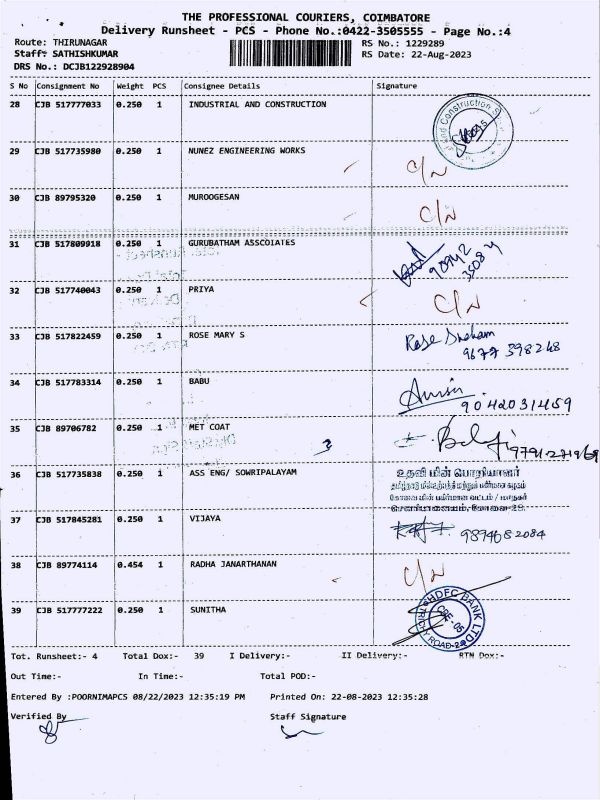 THE PROFESSIONAL COURIERS, COIMBATORE
Delivery Runsheet - PCS - Phone No.:0422-3505555 - Page No.:4
Route: THIRUNAGAR RS No.: 1229289
Staff: SATHISHKUMAR RS Date: 22-Aug-2023
DRS No.: DCJB122928904
S No Consignment No Weight PCS Consignee Details Signature
28 CJB 517777033 0.250 1 INDUSTRIAL AND CONSTRUCTION
29 CJB 517735980 0.250 1 NUNEZ ENGINEERING WORKS C/N
30 CJB 89795320 0.250 1 MUROOGESAN C/N
31 CJB 517809918 0.250 1 GURUBATHAM ASSCOIATES
90942
35084
32 CJB 517740043 0.250 1 PRIYA C/N
33 CJB 517822459 0.250 1 ROSE MARY S Rose
9677 398268
34 CJB 517783314 0.250 1 BABU
9042031459
35 CJB 89706782 0.250 1 MET COAT Balaji
9791271969
36 CJB 517735838 0.250 1 ASS ENG/ SOWRIPALAYAM உதவி மின் பொறியாளர்
37 CJB 517845281 0.250 1 VIJAYA 9894682084
38 CJB 89774114 0.454 1 RADHA JANARTHANAN C/N
39 CJB 517777222 0.250 1 SUNITHA HDFC BANK LTD
TRICHY ROAD
Tot. Runsheet:- 4 Total Dox:- 39 I Delivery:- II Delivery:- RTN Dox:-
Out Time:- In Time:- Total POD:-
Entered By :POORNIMAPCS 08/22/2023 12:35:19 PM Printed On: 22-08-2023 12:35:28
Verified By Staff Signature